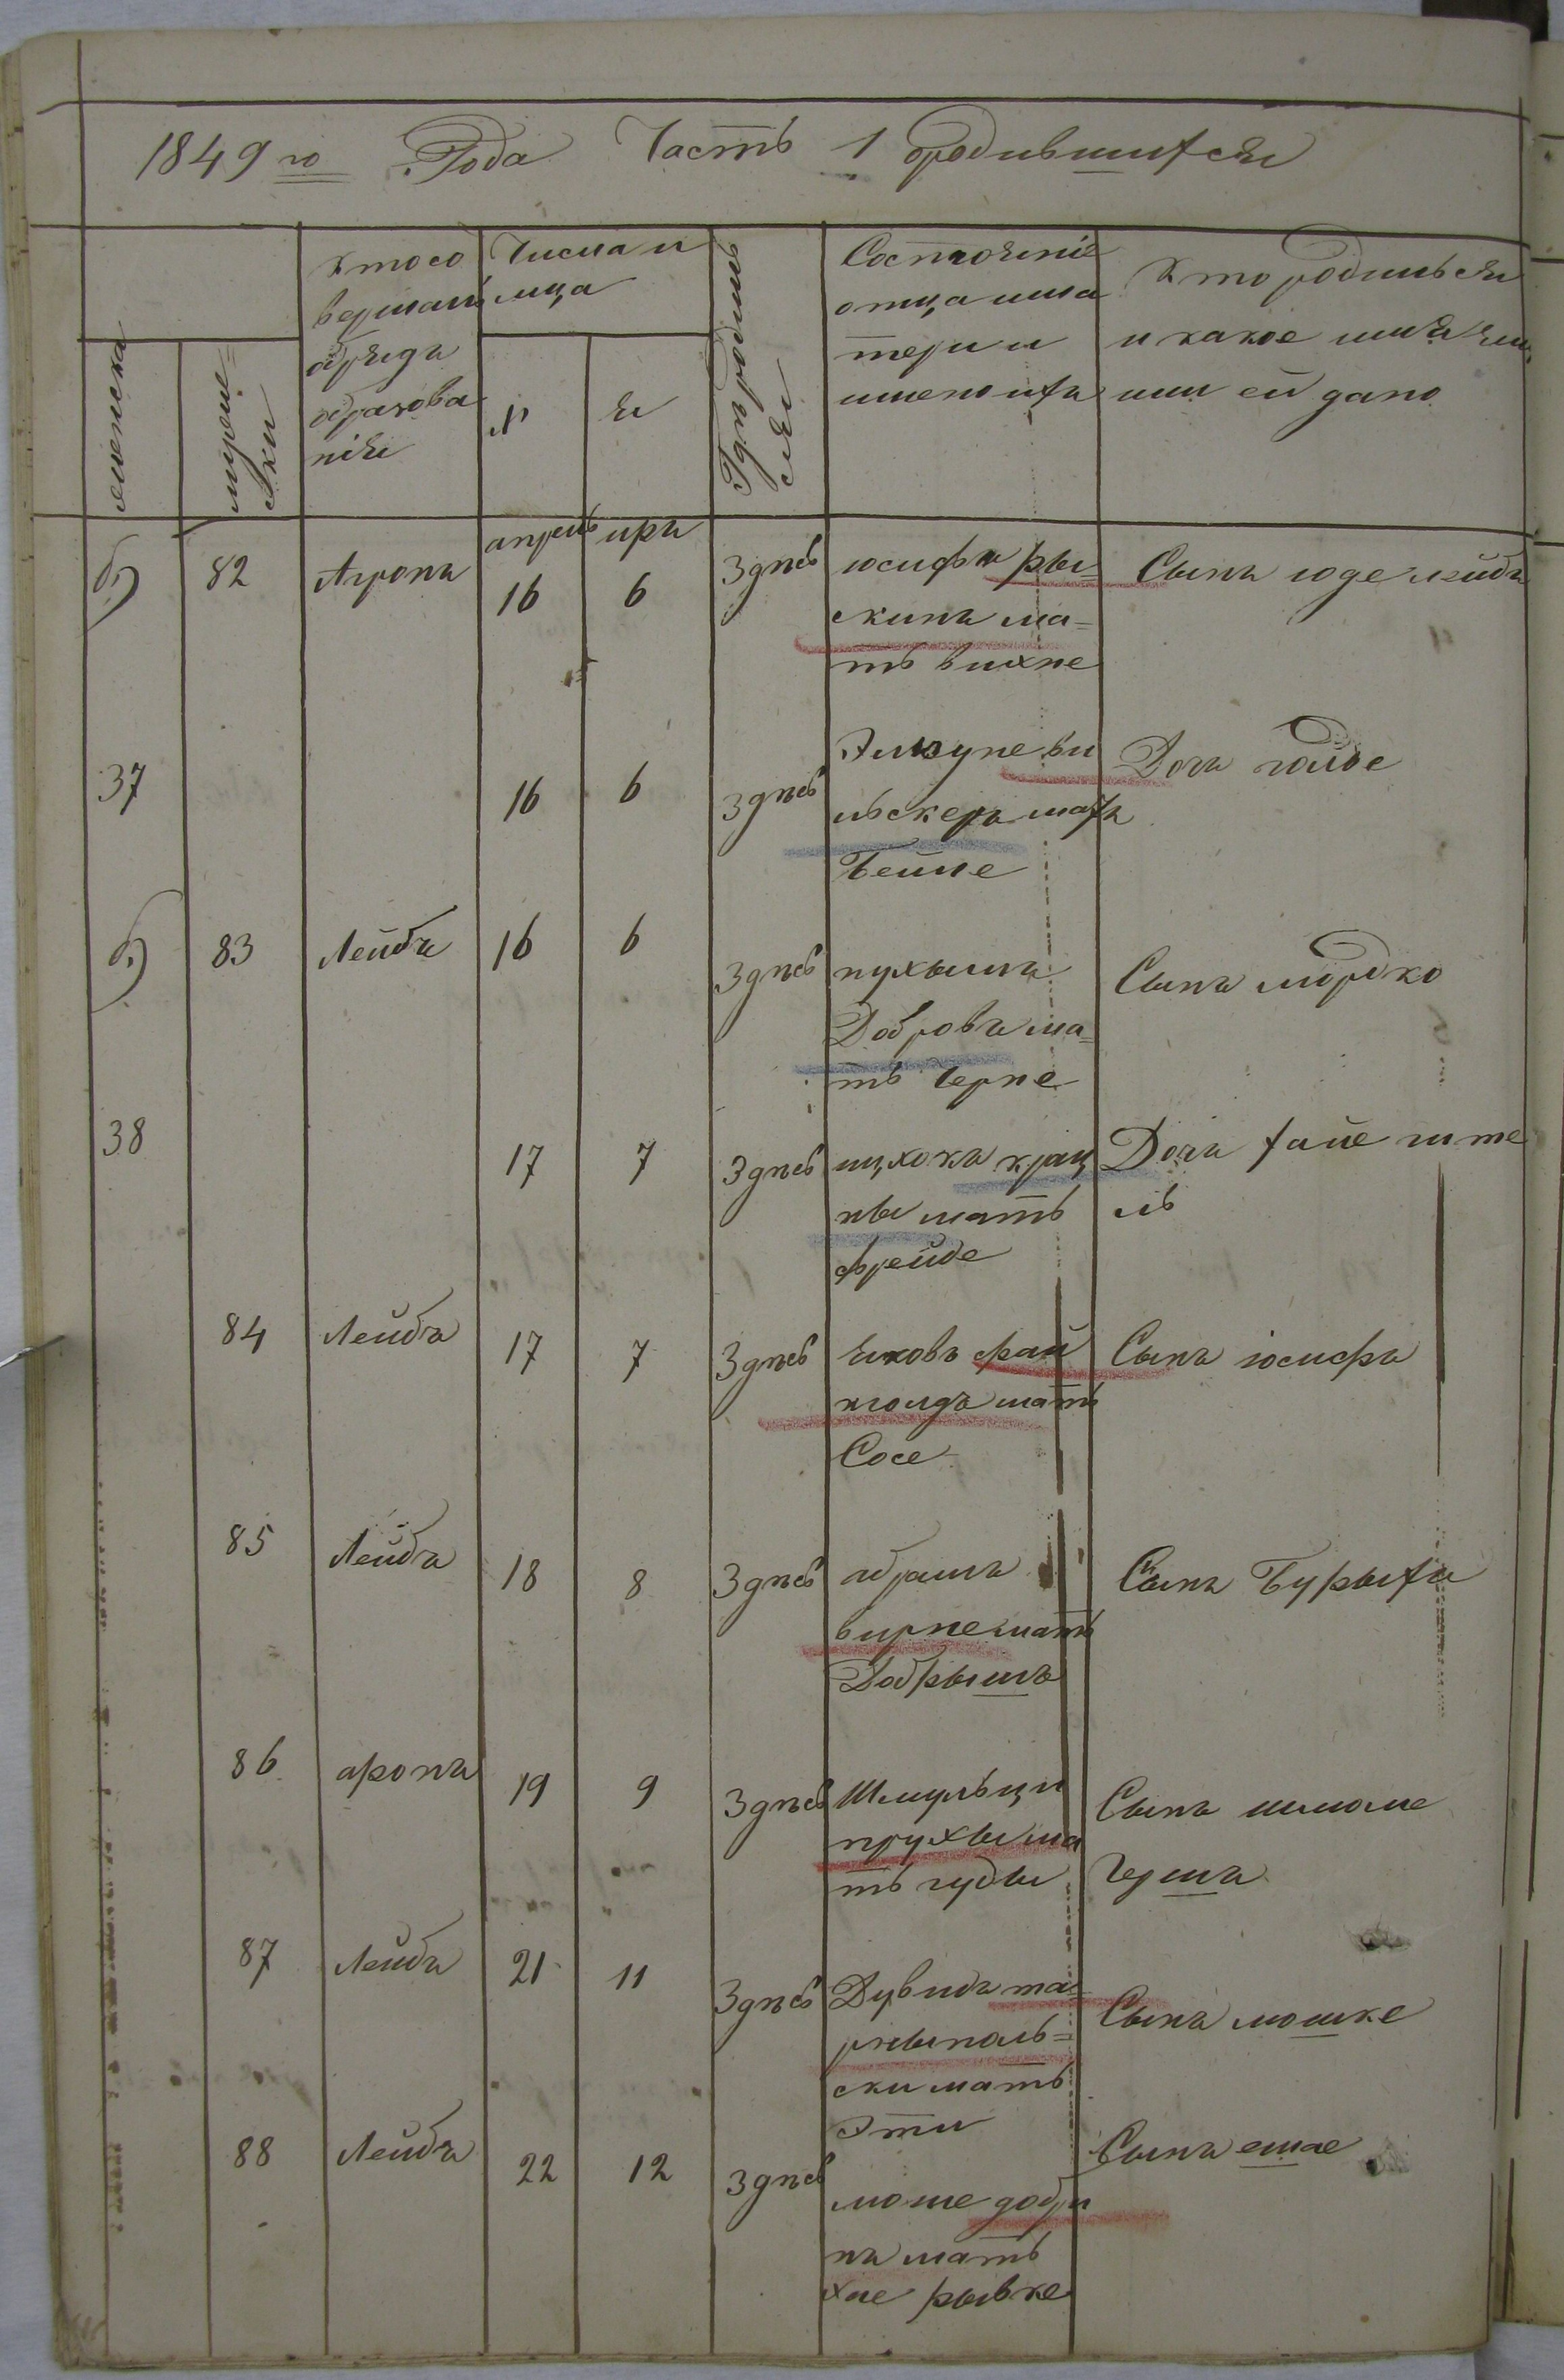 1849 го Года Часть 1 ородившихся
женска
мужес=
ски
кто со
вершалъ
обряда
образова
нія
Числа и
мца
х
я
Гдѣ родился
Состояніе
отца има
тери и
имено ихъ
кто родился
и какое имя ему
или ей дано
апрель ира
б) 82 Аронъ 16 6 Здѣсь
іосифъ ры=
скинъ ма=
ть вихне
Сынъ юде лейбъ
37 16 6 здѣсь
Элкуне ви
льскеръ мать
Бейле
Дочь голде
б) 83 Лейбъ 16 6 Здѣсь
нухымъ
Добровъ ма=
ть Черне
Сынъ мордко
38 17 7 Здѣсь
ицхокъ крац
ны мать
фрейде
Дочь хае ите
ль
84 Лейбъ 17 7 Здѣсь
яковъ фай
нголдъ мать
Сосе
Сынъ іосифъ
85 Лейбъ 18 8 Здѣсь
абрамъ
вирнемать
Добрышъ
Сынъ Бурыхъ
86 аронъ 19 9 Здѣсь
Шмульци
прухы ма
ть гуды
Сынъ шломе
Гершъ
87 Лейбъ 21 11 Здѣсь
Дувидъ та=
рныполь=
ски мать
Эти
Сынъ мошке
88 Лейбъ 22 12 здѣсь
моше добри
нъ мать
хае рывке
Сынъ ешае